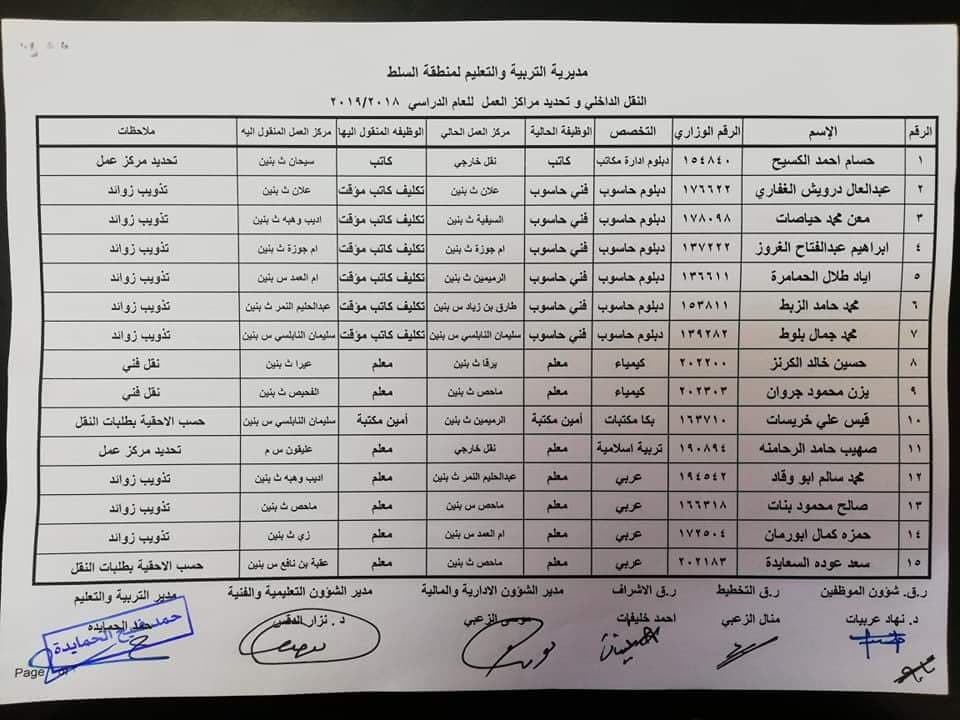 مديرية التربية والتعليم لمنطقة السلط
النقل الداخلي و تحديد مراكز العمل للعام الدراسي ٢٠١٩/٢٠١٨
الرقم الإسم الرقم الوزاري التخصص الوظيفة الحالية مركز العمل الحالي الوظيفه المنقول اليها مركز العمل المنقول اليه ملاحظات
١ حسام احمد الكسيح ١٥٤٨٤٠ دبلوم ادارة مكاتب كاتب نقل خارجي كاتب سيحان ث بنين تحديد مركز عمل
٢ عبدالعال درويش الغفاري ١٧٦٦٢٢ دبلوم حاسوب فني حاسوب علان ث بنين تكليف كاتب مؤقت علان ث بنين تذويب زوائد
٣ معن محمد حياصات ١٧٨٠٩٨ دبلوم حاسوب فني حاسوب السيفية ث بنين تكليف كاتب مؤقت اديب وهبه ث بنين تذويب زوائد
٤ ابراهيم عبدالفتاح الغروز ١٣٧٢٢٢ دبلوم حاسوب فني حاسوب ام جوزة ث بنين تكليف كاتب مؤقت ام جوزة ث بنين تذويب زوائد
٥ اياد طلال الحمامرة ١٣٦٦١١ دبلوم حاسوب فني حاسوب الرميمين ث بنين تكليف كاتب مؤقت ام العمد س بنين تذويب زوائد
٦ محمد حامد الزبط ١٥٣٨١١ دبلوم حاسوب فني حاسوب طارق بن زياد س بنين تكليف كاتب مؤقت عبدالحليم النمر ث بنين تذويب زوائد
٧ محمد جمال بلوط ١٣٩٢٨٢ دبلوم حاسوب فني حاسوب سليمان النابلسي س بنين تكليف كاتب مؤقت سليمان النابلسي س بنين تذويب زوائد
٨ حسين خالد الكرنز ٢٠٢٢٠٠ كيمياء معلم يرقا ث بنين معلم عيرا ث بنين نقل فني
٩ يزن محمود جروان ٢٠٢٣٠٣ كيمياء معلم ماحص ث بنين معلم الفحيص ث بنين نقل فني
١٠ قيس علي خريسات ١٦٣٧١٠ بكا مكتبات أمين مكتبة الرميمين ث بنين أمين مكتبة سليمان النابلسي س بنين حسب الاحقية بطلبات النقل
١١ صهيب حامد الرحامنه ١٩٠٨٩٤ تربية اسلامية معلم نقل خارجي معلم عليقون س م تحديد مركز عمل
١٢ محمد سالم ابو وقاد ١٩٤٥٤٢ عربي معلم عبدالحليم النمر ث بنين معلم اديب وهبه ث بنين تذويب زوائد
١٣ صالح محمود بنات ١٦٦٣١٨ عربي معلم ماحص س بنين معلم ماحص ث بنين تذويب زوائد
١٤ حمزه كمال ابورمان ١٧٢٥٠٤ عربي معلم ام العمد س بنين معلم زي ث بنين تذويب زوائد
١٥ سعد عوده السعايدة ٢٠٢١٨٣ عربي معلم ماحص ث بنين معلم عقبة بن نافع س بنين حسب الاحقية بطلبات النقل
ر.ق. شؤون الموظفين ر.ق التخطيط ر.ق الاشراف مدير الشؤون الادارية والمالية مدير الشؤون التعليمية والفنية مدير التربية والتعليم
د. نهاد عربيات منال الزعبي احمد خليفات موسى الزعبي د. نزار الدقس حمد الحمايده
الحمايدة
Page